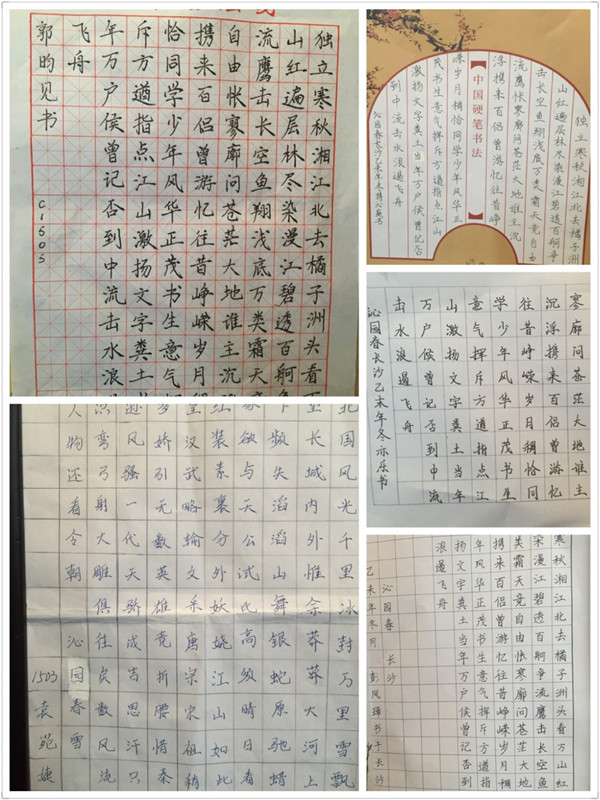 独立寒秋湘江北去橘子洲头看
山红遍层林尽染漫江碧透百舸
流鹰击长空鱼翔浅底万类霜天
自由怅寥廓问苍茫大地谁主沉
携来百侣曾游忆往昔峥嵘岁月
恰同学少年风华正茂书生意气
斥方遒指点江山激扬文字粪土
年万户侯曾记否到中流击水浪
飞舟
郭昀见书 C1505
独立寒秋湘江北去橘子洲
山红遍层林尽染漫江碧透百舸争
击长空鱼翔浅底万类霜天竞自由
流鹰怅寥廓问苍茫大地谁主沉
浮携来百侣曾游忆往昔峥
中国硬笔书法
嵘岁月稠恰同学少年风华正
茂书生意气挥斥方遒指点江山
激扬文字粪土当年万户侯曾记否
到中流击水浪遏飞舟
沁园春长沙乙未年冬
寥廓问苍茫大地谁主
沉浮携来百侣曾游忆
往昔峥嵘岁月稠恰同
学少年风华正茂书生
意气挥斥方遒指点江
山激扬文字粪土当年
万户侯曾记否到中流
击水浪遏飞舟
沁园春长沙乙未年冬亦乐书
北国风光千里冰封万里雪飘
望长城内外惟余莽莽大河上
下顿失滔滔山舞银蛇原驰蜡
象欲与天公试比高须晴日看
红装素裹分外妖娆江山如此
多娇引无数英雄竞折腰惜秦
皇汉武略输文采唐宗宋祖稍
逊风骚一代天骄成吉思汗只
识弯弓射大雕俱往矣数风流
人物还看今朝 沁园春雪
1503袁苑婕
寒秋湘江北去橘子洲头看万山红
染漫江碧透百舸争流鹰击长空鱼
类霜天竞自由怅寥廓问苍茫大地
携来百侣曾游忆往昔峥嵘岁月稠
年风华正茂书生意气挥斥方遒指
扬文字粪土当年万户侯曾记否到
浪遏飞舟
沁园春 长沙
乙未年冬月 彭凤璋书于长沙